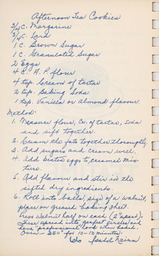 Afternoon Tea Cookies
1/2 C. Margarine
1/2 C. Lard
1 C. Brown Sugar
1 C. Granulated Sugar
2 Eggs
4 C. A.P. flour
4 tsp. Cream of tartar
2 tsp. Baking Soda
1 tsp. Vanilla or Almond flavour
Method:
1. Measure flour, Cr. of tartar, soda
and sift together
2. Cream the fats together thoroughly
3. Add sugars and cream well.
4. Add beaten eggs to creamed mix-
ture
5. Add flavour and stir in the
sifted dry ingredients
6. Roll into balls, size of a walnut,
place on greased baking sheet
Press walnut half on each (2" apart).
These spread into perfect circles and
look professional when baked.
350° for 10-12 minutes